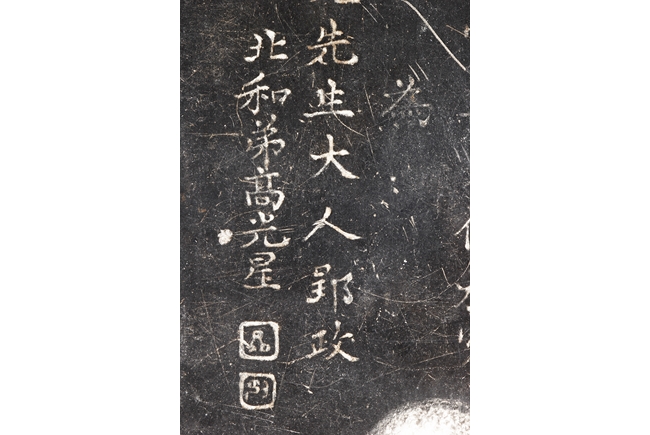 為
先生大人郢政
北和弟高光星